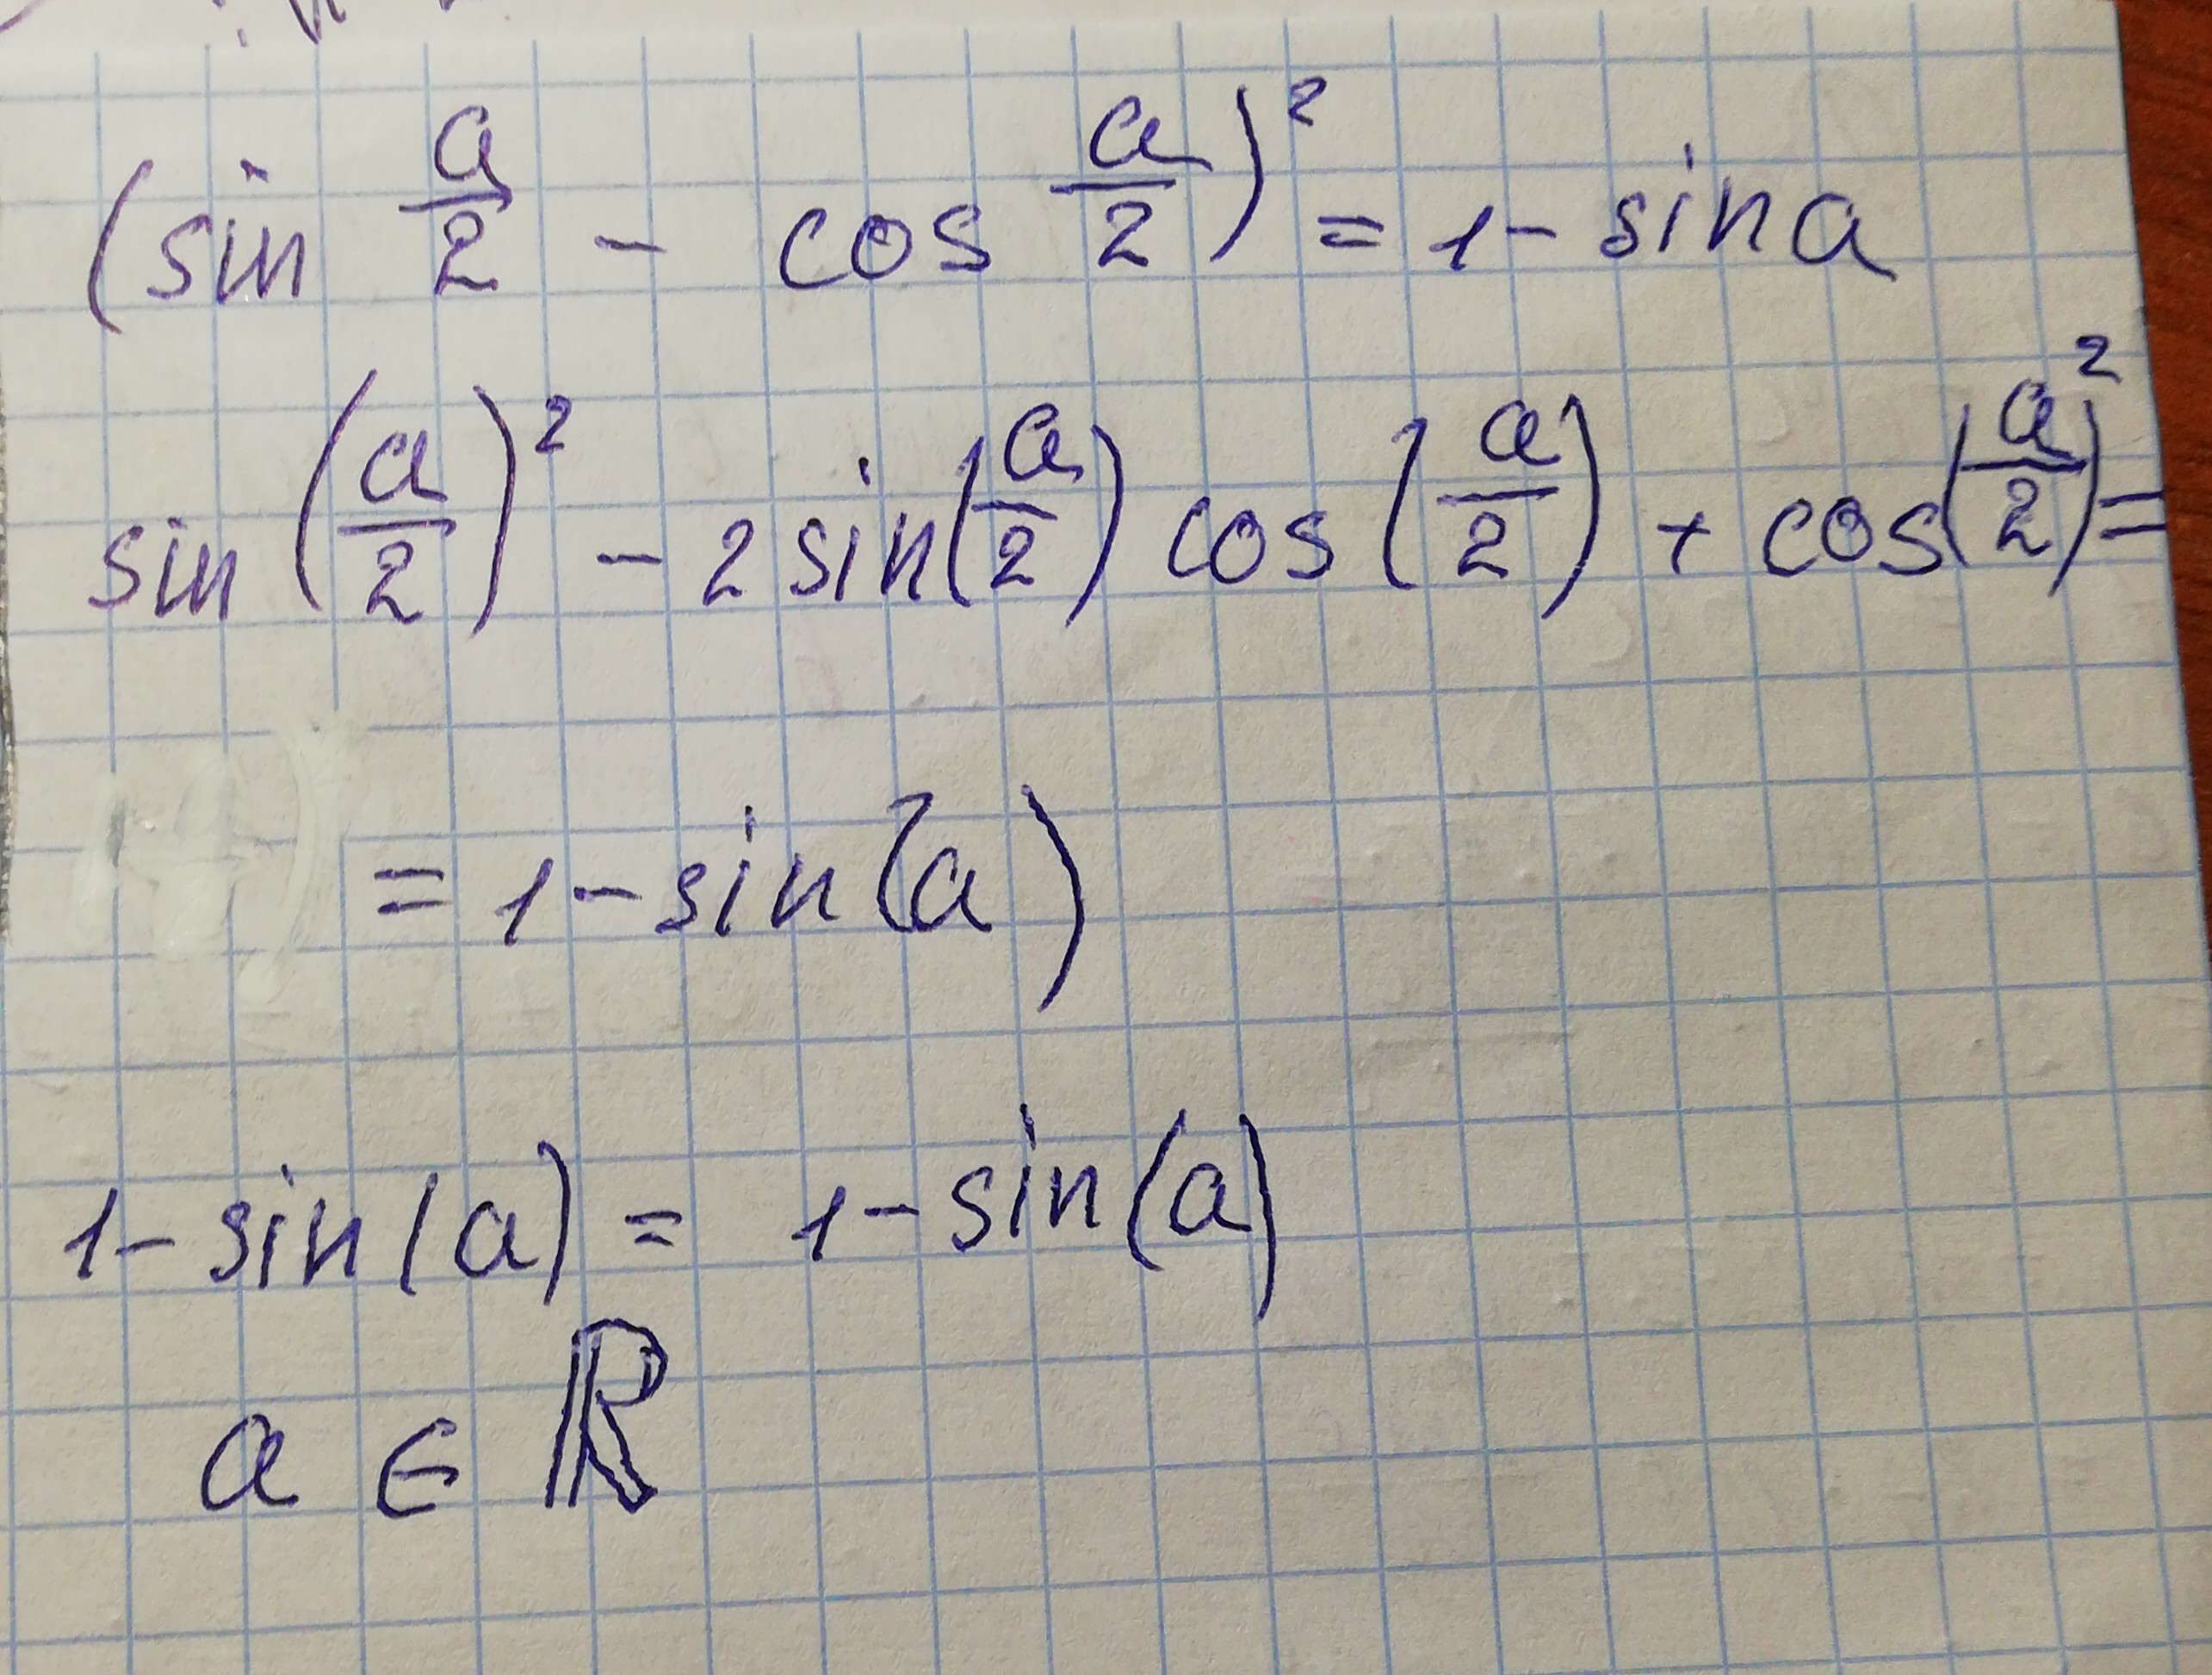 (sin a/2 - cos a/2)² = 1 - sin a
sin(a/2)² - 2 sin(a/2) cos(a/2) + cos(a/2)² =
= 1 - sin(a)
1 - sin(a) = 1 - sin(a)
a ∈ ℝ